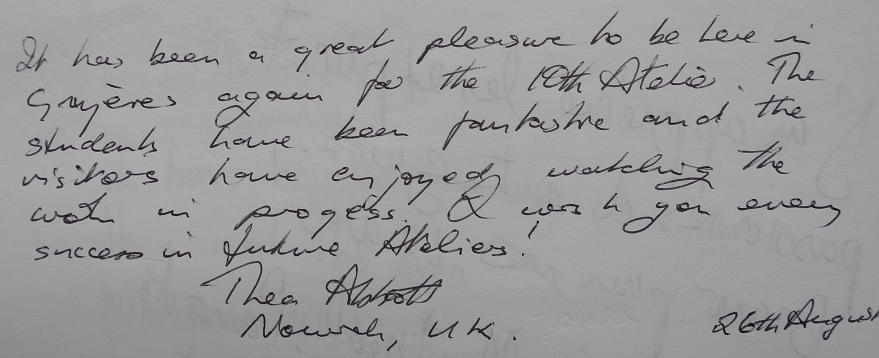 It has been a great pleasure to be here in
Gruyères again for the 10th Atelier. The
students have been fantastic and the
visitors have enjoyed watching the
work in progress. I wish you every
success in future Ateliers!
Thea Abbott
Norwich, UK.
26th August